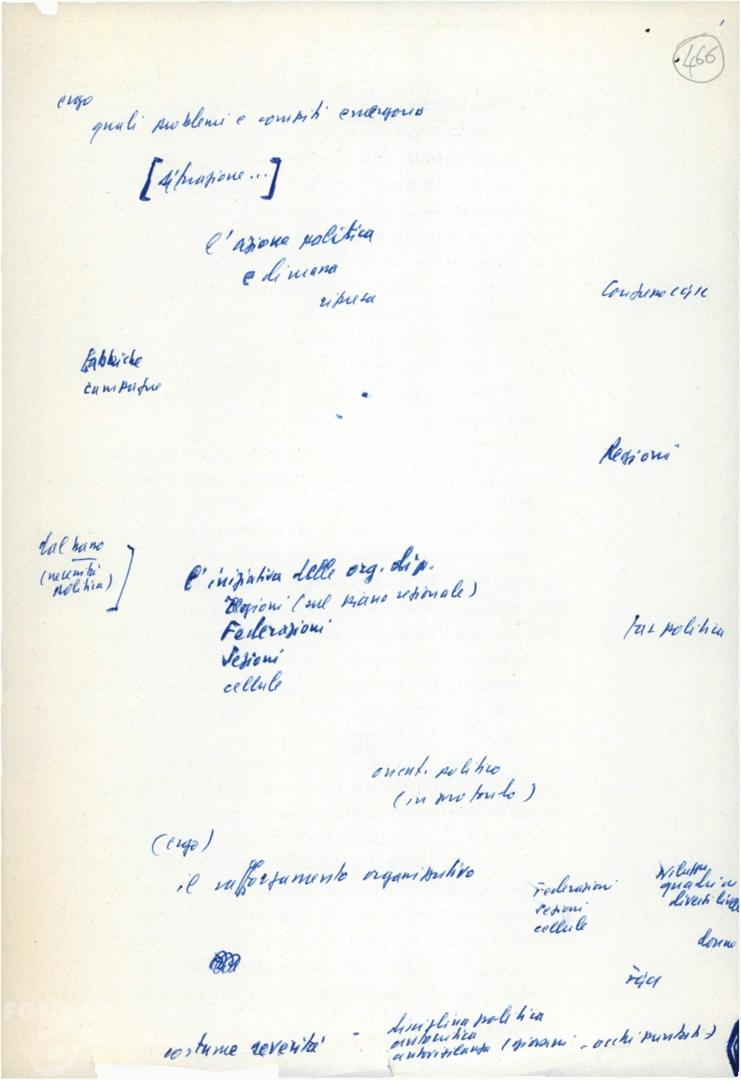 466
ergo
quali problemi e compiti emergono
[situazione...]
l'azione politica
e di massa
ripresa
fabbriche
campagne
Regioni
dal basso
(necessità
politica)
l'iniziativa delle org. dip.
Regioni (sul piano regionale)
Federazioni
Sezioni
cellule
politica
orient. politico
(in profondo)
(ergo)
il rafforzamento organizzativo
Federazioni
sezioni
cellule
sviluppo
quadri a
diversi live
donne
FGCI
costume severità -
disciplina politica
autocritica
autovigilanza (giovani - occhi puntati)